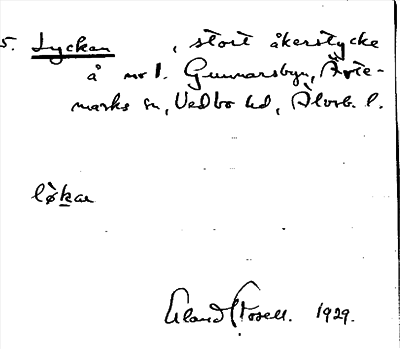 5. Lyckan, stort åkerstycke
å nr 1. Gunnarsbyn, Ärte-
marks sn, Vedbo hd, Älvsb. l.
lø̀kan
Erland Rosell. 1929.